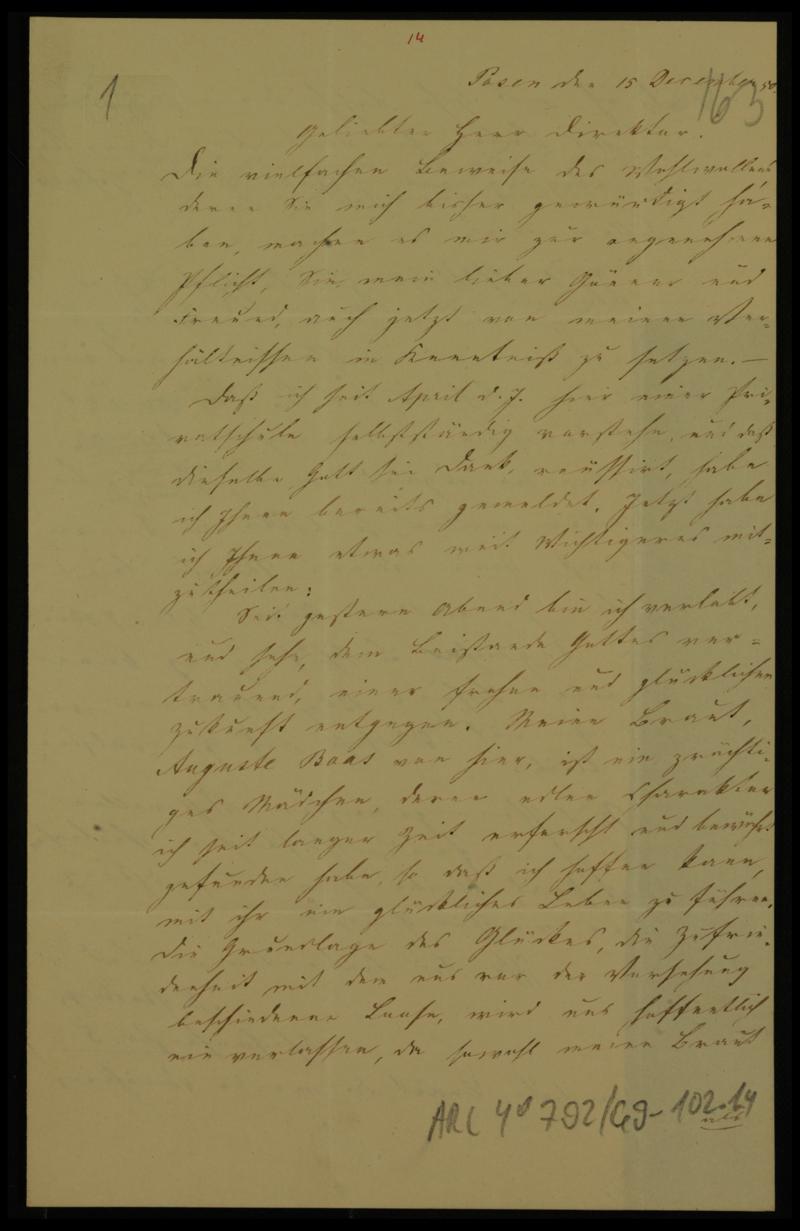 14
1
Posen den 15 December 50.
163
Geliebter Herr Direktor.
Die vielfachen Beweise des Wohlwollens
deren Sie mich bisher gewürdigt ha-
ben, machen es mir zur angenehmen
Pflicht, Sie, mein lieber Gönner und
Freund, auch jetzt von meinen Ver-
hältnissen in Kenntniß zu setzen. —
Daß ich seit April d. J. hier einer Pri-
vatschule selbstständig vorstehe, und daß
dieselbe, Gott sei Dank, reüssirt, habe
ich Ihnen bereits gemeldet. Jetzt habe
ich Ihnen etwas weit Wichtigeres mit-
zutheilen:
Seit gestern Abend bin ich verlobt,
und sehe, dem Beistande Gottes ver-
trauend, einer frohen und glücklichen
Zukunft entgegen. Meine Braut,
Auguste Baas von hier, ist ein prächti-
ges Mädchen, deren edlen Charakter
ich seit langer Zeit erforscht und bewährt
gefunden habe, so daß ich hoffen kann,
mit ihr ein glückliches Leben zu führen.
Die Grundlage des Glückes, die Zufrie-
denheit mit dem uns von der Vorsehung
beschiedenen Loose, wird uns hoffentlich
nie verlassen, da sowohl meine Braut
als
ARC 4° 792/G9-102.14